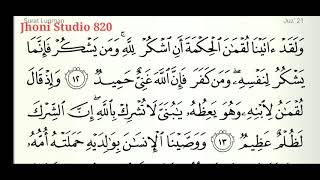 Surat Luqman
Juz' 21
Jhoni Studio 820
وَلَقَدْ ءَاتَيْنَا لُقْمَٰنَ ٱلْحِكْمَةَ أَنِ ٱشْكُرْ لِلَّهِ ۚ وَمَن يَشْكُرْ فَإِنَّمَا
يَشْكُرُ لِنَفْسِهِۦ ۖ وَمَن كَفَرَ فَإِنَّ ٱللَّهَ غَنِىٌّ حَمِيدٌ ١٢ وَإِذْ قَالَ
لُقْمَٰنُ لِٱبْنِهِۦ وَهُوَ يَعِظُهُۥ يَٰبُنَىَّ لَا تُشْرِكْ بِٱللَّهِ ۖ إِنَّ ٱلشِّرْكَ
لَظُلْمٌ عَظِيمٌ ١٣ وَوَصَّيْنَا ٱلْإِنسَٰنَ بِوَٰلِدَيْهِ حَمَلَتْهُ أُمُّهُۥ